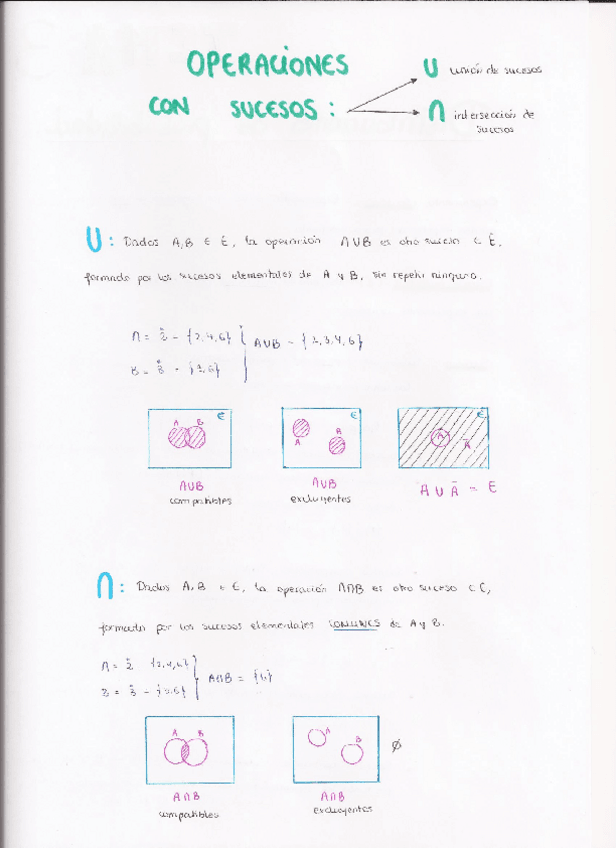 OPERACIONES
CON SUCESOS:
U unión de sucesos
∩ intersección de
sucesos
U: Dados A, B ∈ E, la operación A∪B es otro suceso ⊂ E,
formado por los sucesos elementales de A y B, sin repetir ninguno.
A = 2̇ - {2,4,6}
B = 3̇ - {3,6}
A∪B - {2,3,4,6}
A B E
A B E
A Ā E
A∪B
compatibles
A∪B
excluyentes
A ∪ Ā = E
∩: Dados A, B ∈ E, la operación A∩B es otro suceso ⊂ E,
formado por los sucesos elementales COMUNES de A y B.
A = 2̇ {2,4,6}
B = 3̇ - {3,6}
A∩B = {6}
A B
A B
∅
A∩B
compatibles
A∩B
excluyentes